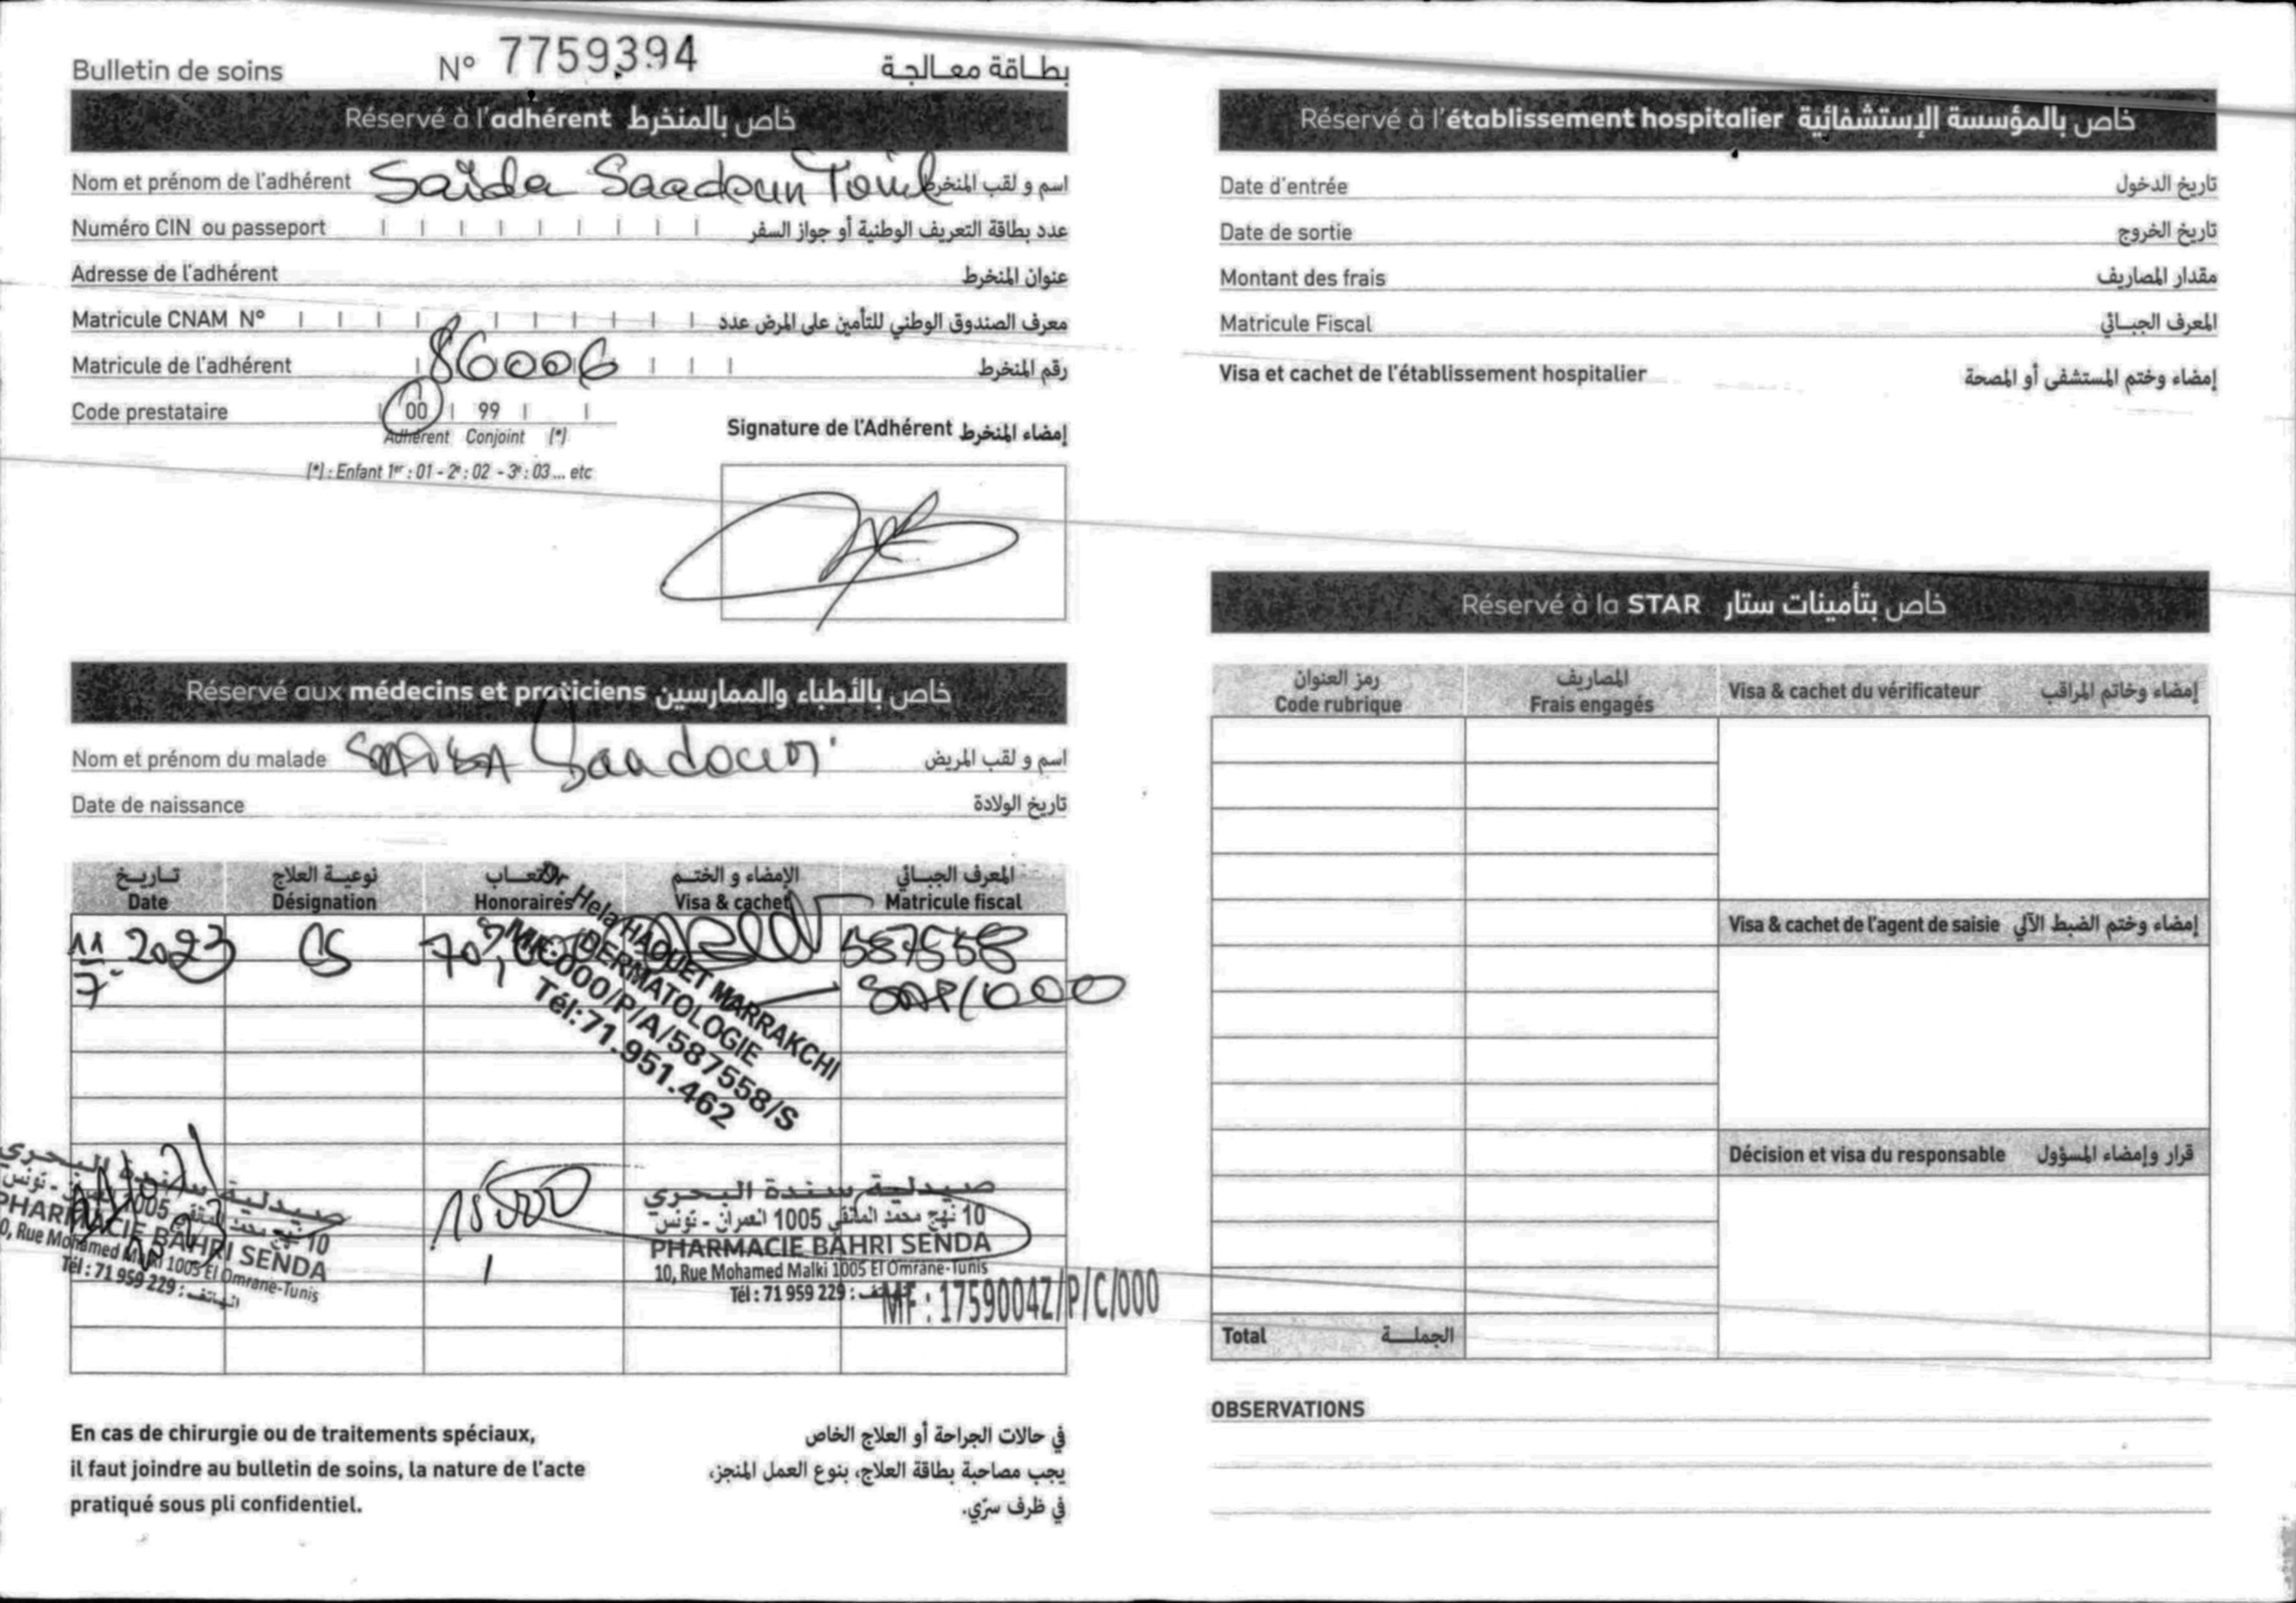 Bulletin de soins N° 7759394 بطاقة معالجة
Réservé à l'adhérent خاص بالمنخرط
Nom et prénom de l'adhérent Saïda Saadoun اسم و لقب المنخرط
Numéro CIN ou passeport عدد بطاقة التعريف الوطنية أو جواز السفر
Adresse de l'adhérent عنوان المنخرط
Matricule CNAM N° معرف الصندوق الوطني للتأمين على المرض عدد
Matricule de l'adhérent 86006 رقم المنخرط
Code prestataire 00 99
Adhérent Conjoint (*)
(*) : Enfant 1er : 01 - 2e : 02 - 3e : 03 ... etc
Signature de l'Adhérent إمضاء المنخرط
Réservé aux médecins et praticiens خاص بالأطباء والممارسين
Nom et prénom du malade Saadoun اسم و لقب المريض
Date de naissance تاريخ الولادة
تاريخ نوعية العلاج الأتعاب الإمضاء و الختم المعرف الجبائي
Date Désignation Honoraires Visa & cachet Matricule fiscal
11 2023 CS 587558
7
Dr Hela HAOUET MARRAKCHI
DERMATOLOGIE
MF:000/P/A/587558/S
Tél:71.951.462
صيدلية سندة البحري
10 نهج محمد المالقي 1005 العمران - تونس
PHARMACIE BAHRI SENDA
10, Rue Mohamed Malki 1005 El Omrane-Tunis
Tél : 71 959 229 : الهاتف
15000
1
صيدلية سندة البحري
10 نهج محمد المالقي 1005 العمران - تونس
PHARMACIE BAHRI SENDA
10, Rue Mohamed Malki 1005 El Omrane-Tunis
Tél : 71 959 229 :
MF : 1759004Z/P/C/000
En cas de chirurgie ou de traitements spéciaux,
il faut joindre au bulletin de soins, la nature de l'acte
pratiqué sous pli confidentiel.
في حالات الجراحة أو العلاج الخاص
يجب مصاحبة بطاقة العلاج، بنوع العمل المنجز،
في ظرف سرّي.
Réservé à l'établissement hospitalier خاص بالمؤسسة الإستشفائية
Date d'entrée تاريخ الدخول
Date de sortie تاريخ الخروج
Montant des frais مقدار المصاريف
Matricule Fiscal المعرف الجبائي
Visa et cachet de l'établissement hospitalier إمضاء وختم المستشفى أو المصحة
Réservé à la STAR خاص بتأمينات ستار
رمز العنوان المصاريف
Code rubrique Frais engagés Visa & cachet du vérificateur إمضاء وخاتم المراقب
Visa & cachet de l'agent de saisie إمضاء وختم الضبط الآلي
Décision et visa du responsable قرار وإمضاء المسؤول
Total الجملة
OBSERVATIONS